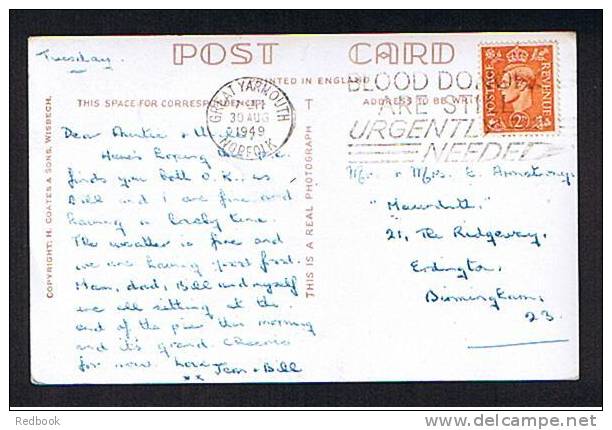 Tuesday.
POST CARD
PRINTED IN ENGLAND
THIS SPACE FOR CORRESPONDENCE
ADDRESS TO BE WRIT
GREAT YARMOUTH
30 AUG
1949
NORFOLK
BLOOD DONORS
ARE STILL
URGENTLY
NEEDED
POSTAGE
REVENUE
2D
COPYRIGHT: H. COATES & SONS, WISBECH.
THIS IS A REAL PHOTOGRAPH
Dear Auntie +
Here's hoping this
finds you both O.K. as
Bill and I are fine and
having a lovely time.
The weather is fine and
we are having good food.
Mam, dad, Bill and myself
are all sitting at the
end of the pier this morning
and it's grand. Cheerio
for now. Love
Jean + Bill
xx
Mr. + Mrs. E. Armstrong.
21, The Ridgeway,
Erdington,
Birmingham,
23.
Redbook
www.delcampe.net